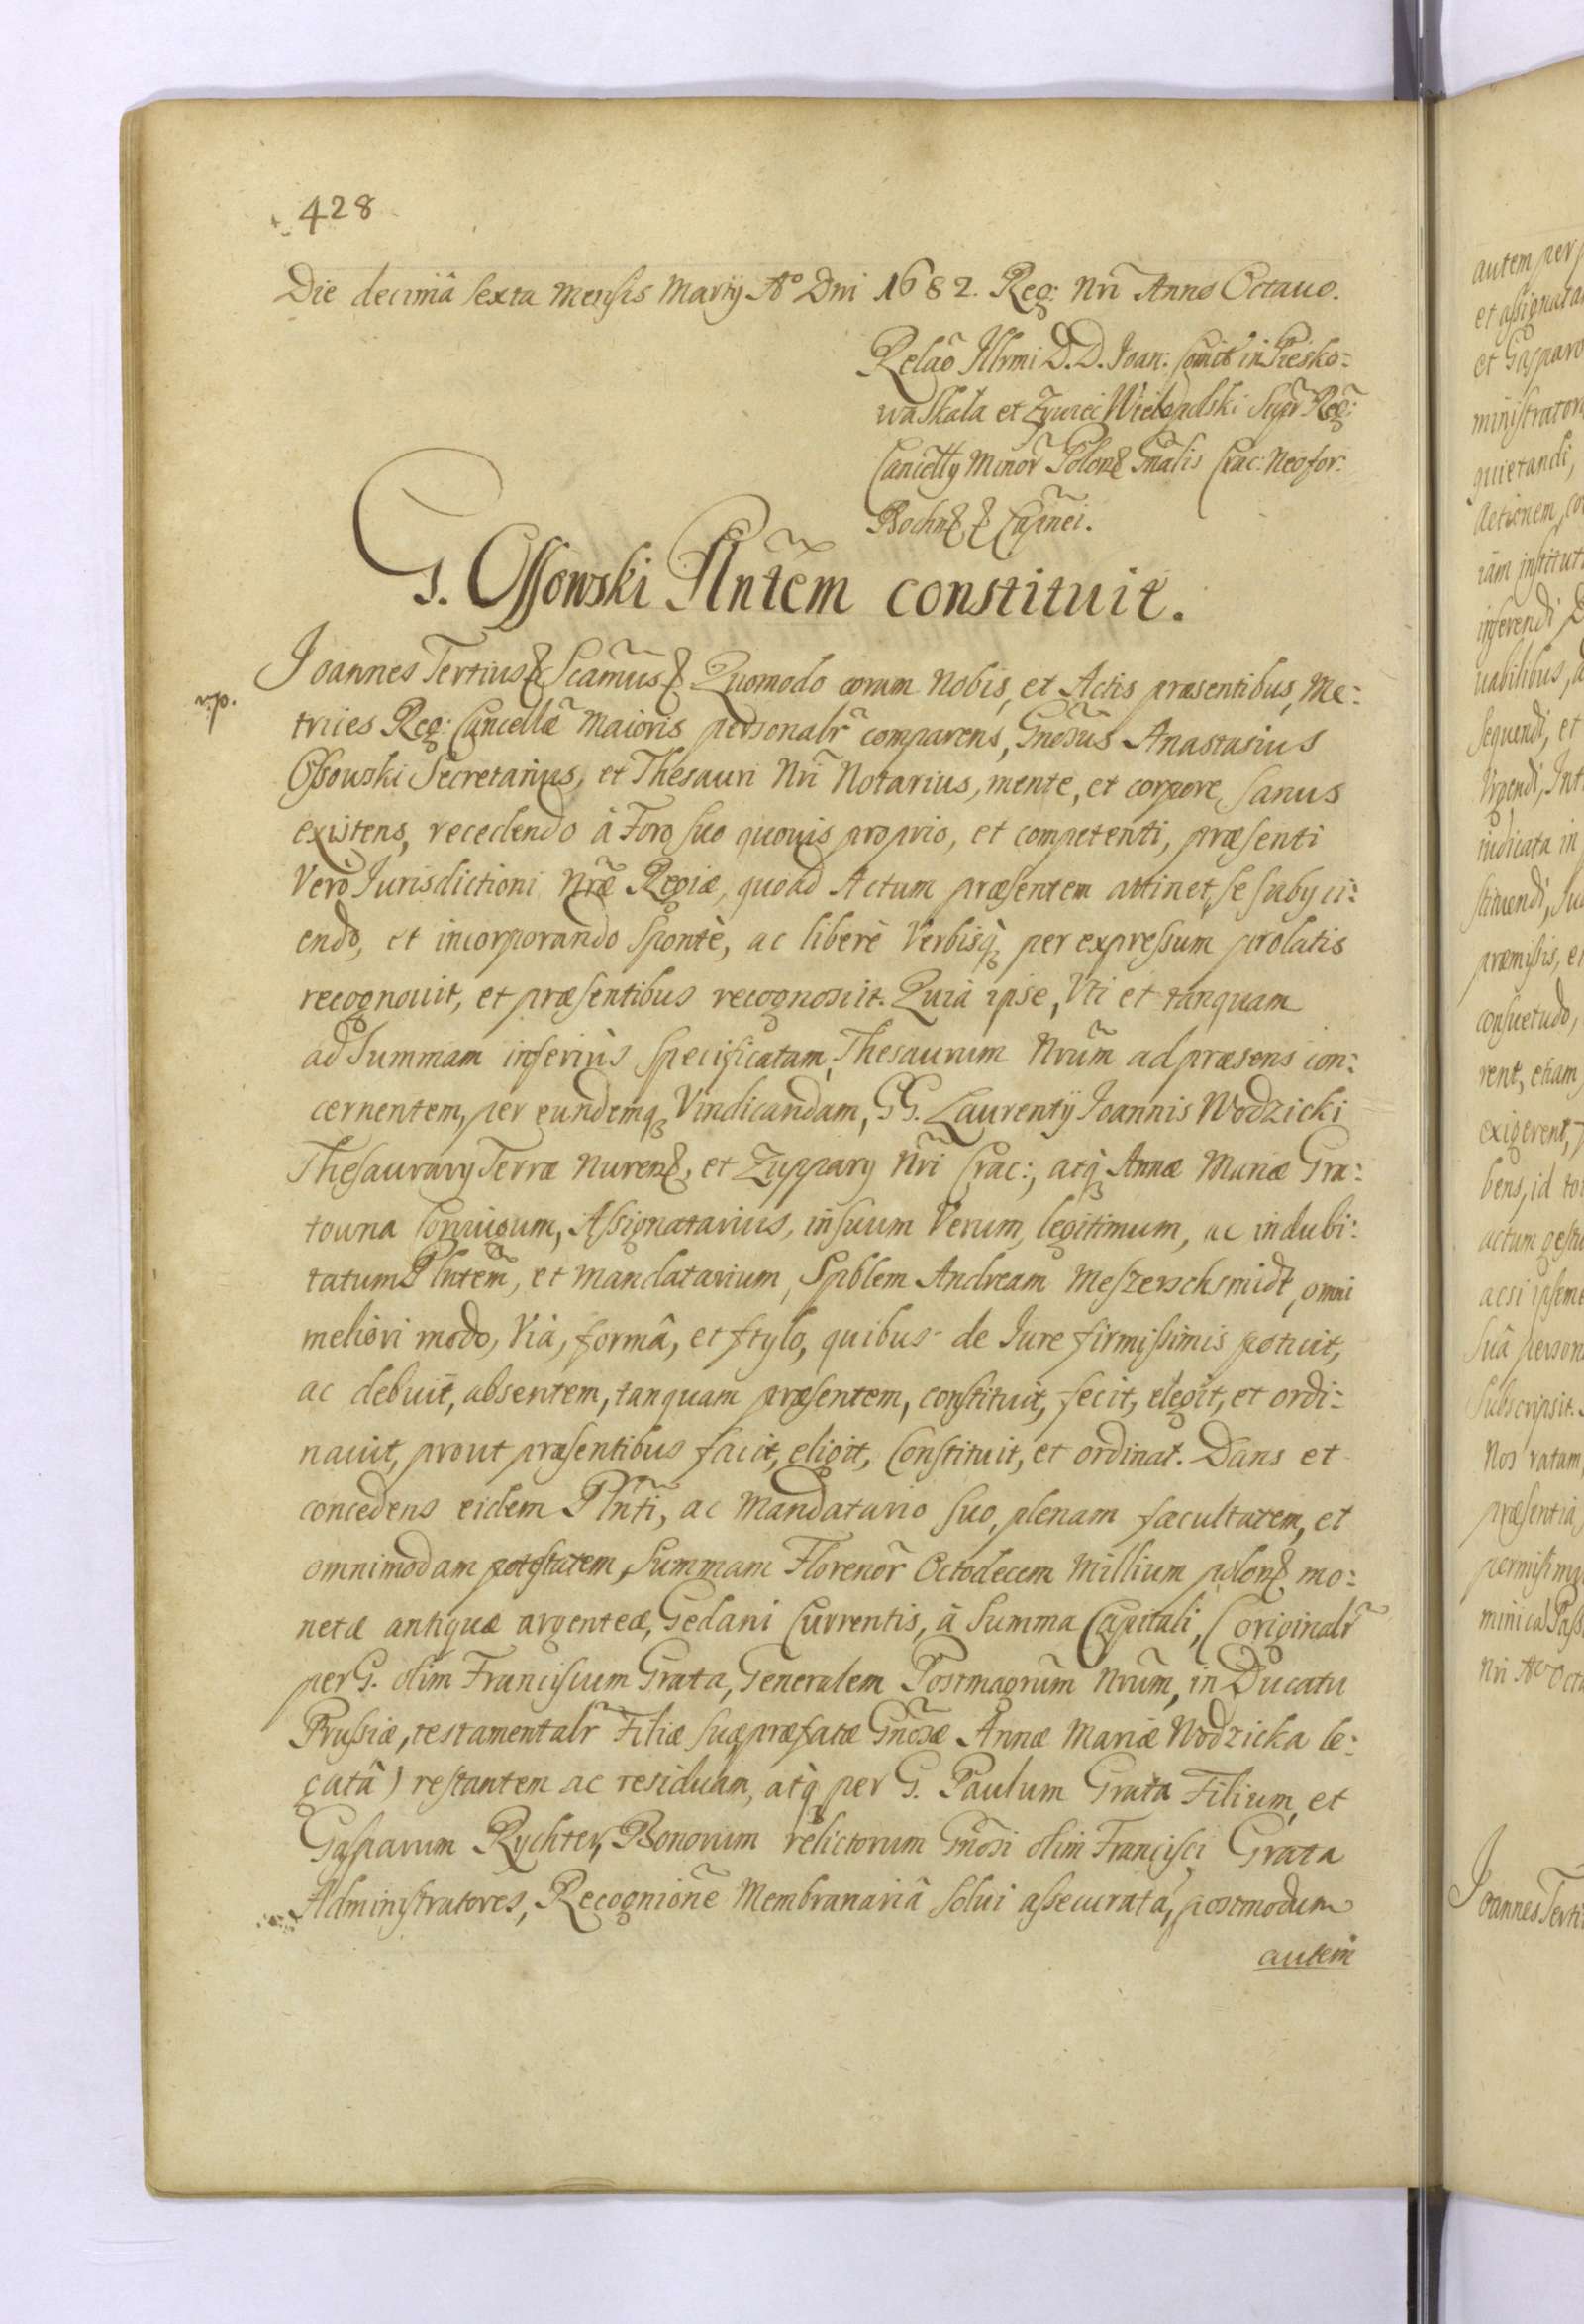 428
Die decimâ sexta Mensis Martij Aº Dni 1682. Reg: Nrĩ Anno Octauo.
Relaõ Illrmi D.D. Joan: Comit in Piesko=
waSkała et Zywiec Wielopolski Supr Reg:
Cancellÿ Minor Polon Gnãlis Crac: Neofor:
Bochn Casnei.
G. Ossowski Plntẽm constituit.
Joannes Tertius Scamus Quomodo coram Nobis, et Actis præsentibus, Me=
n.p.
trices Reg: Cancellæ Maioris personalr comparens, Gnosus Anastasius
Ossowski Secretarius, et Thesauri Nrĩ Notarius, mente, et corpore, sanus
existens, recedendo à Foro suo quouis proprio, et competenti, præsenti
Verò Jurisdictioni Nræ Regiæ, quoad Actum præsentem attinet, se subijci=
endo, et incorporando Spontè, ac liberè Verbisq per expressum prolatis
recognouit, et præsentibus recognoscit. Quia ipse, Vti et tanquam
ad Summam inferius specificatam, Thesaurum Nrum ad præsens con=
cernentem, per eundemq Vindicandam, GG. Laurentij Joannis Wodzicki
Thesaurarij Terræ Nuren, et Zupparij Nri Crac:, atq Annæ Mariæ Gra=
towna Coniugum, Assignatarius, in suum Verum, legitimum, ac indubi=
tatum Plntẽm, et Mandatarium, Spblem Andream Meszerschsmidt, omni
meliori modo, Vià, formâ, et stylo, quibus de Jure firmissimis potuit,
ac debuit, absentem, tanquam præsentem, constituit, fecit, elegit, et ordi=
nauit, prout præsentibus facit, eligit, Constituit, et ordinat. Dans et
concedens eidem Plnti, ac Mandatario suo, plenam facultatem, et
omnimodam potestatem, Summam Florenor Octodecem Millium polon mo=
netæ antiquæ argenteæ, Gedani Currentis, à Summa Capitali, (originalr
per G. olim Franciscum Grata, Generalem Postmagrum Nrum, in Ducatu
Prussiæ, testamentalr Filiæ suæ præfatæ Gnosæ Annæ Mariæ Wodzicka le=
gatâ) restantem ac residuam, atq per G. Paulum Grata Filium, et
Gasparum Rychter, Bonorum relictorum Gnosi olim Francisci Grata
Administratores, Recognione Membranariâ solui assecuratâ, postmodum
autem